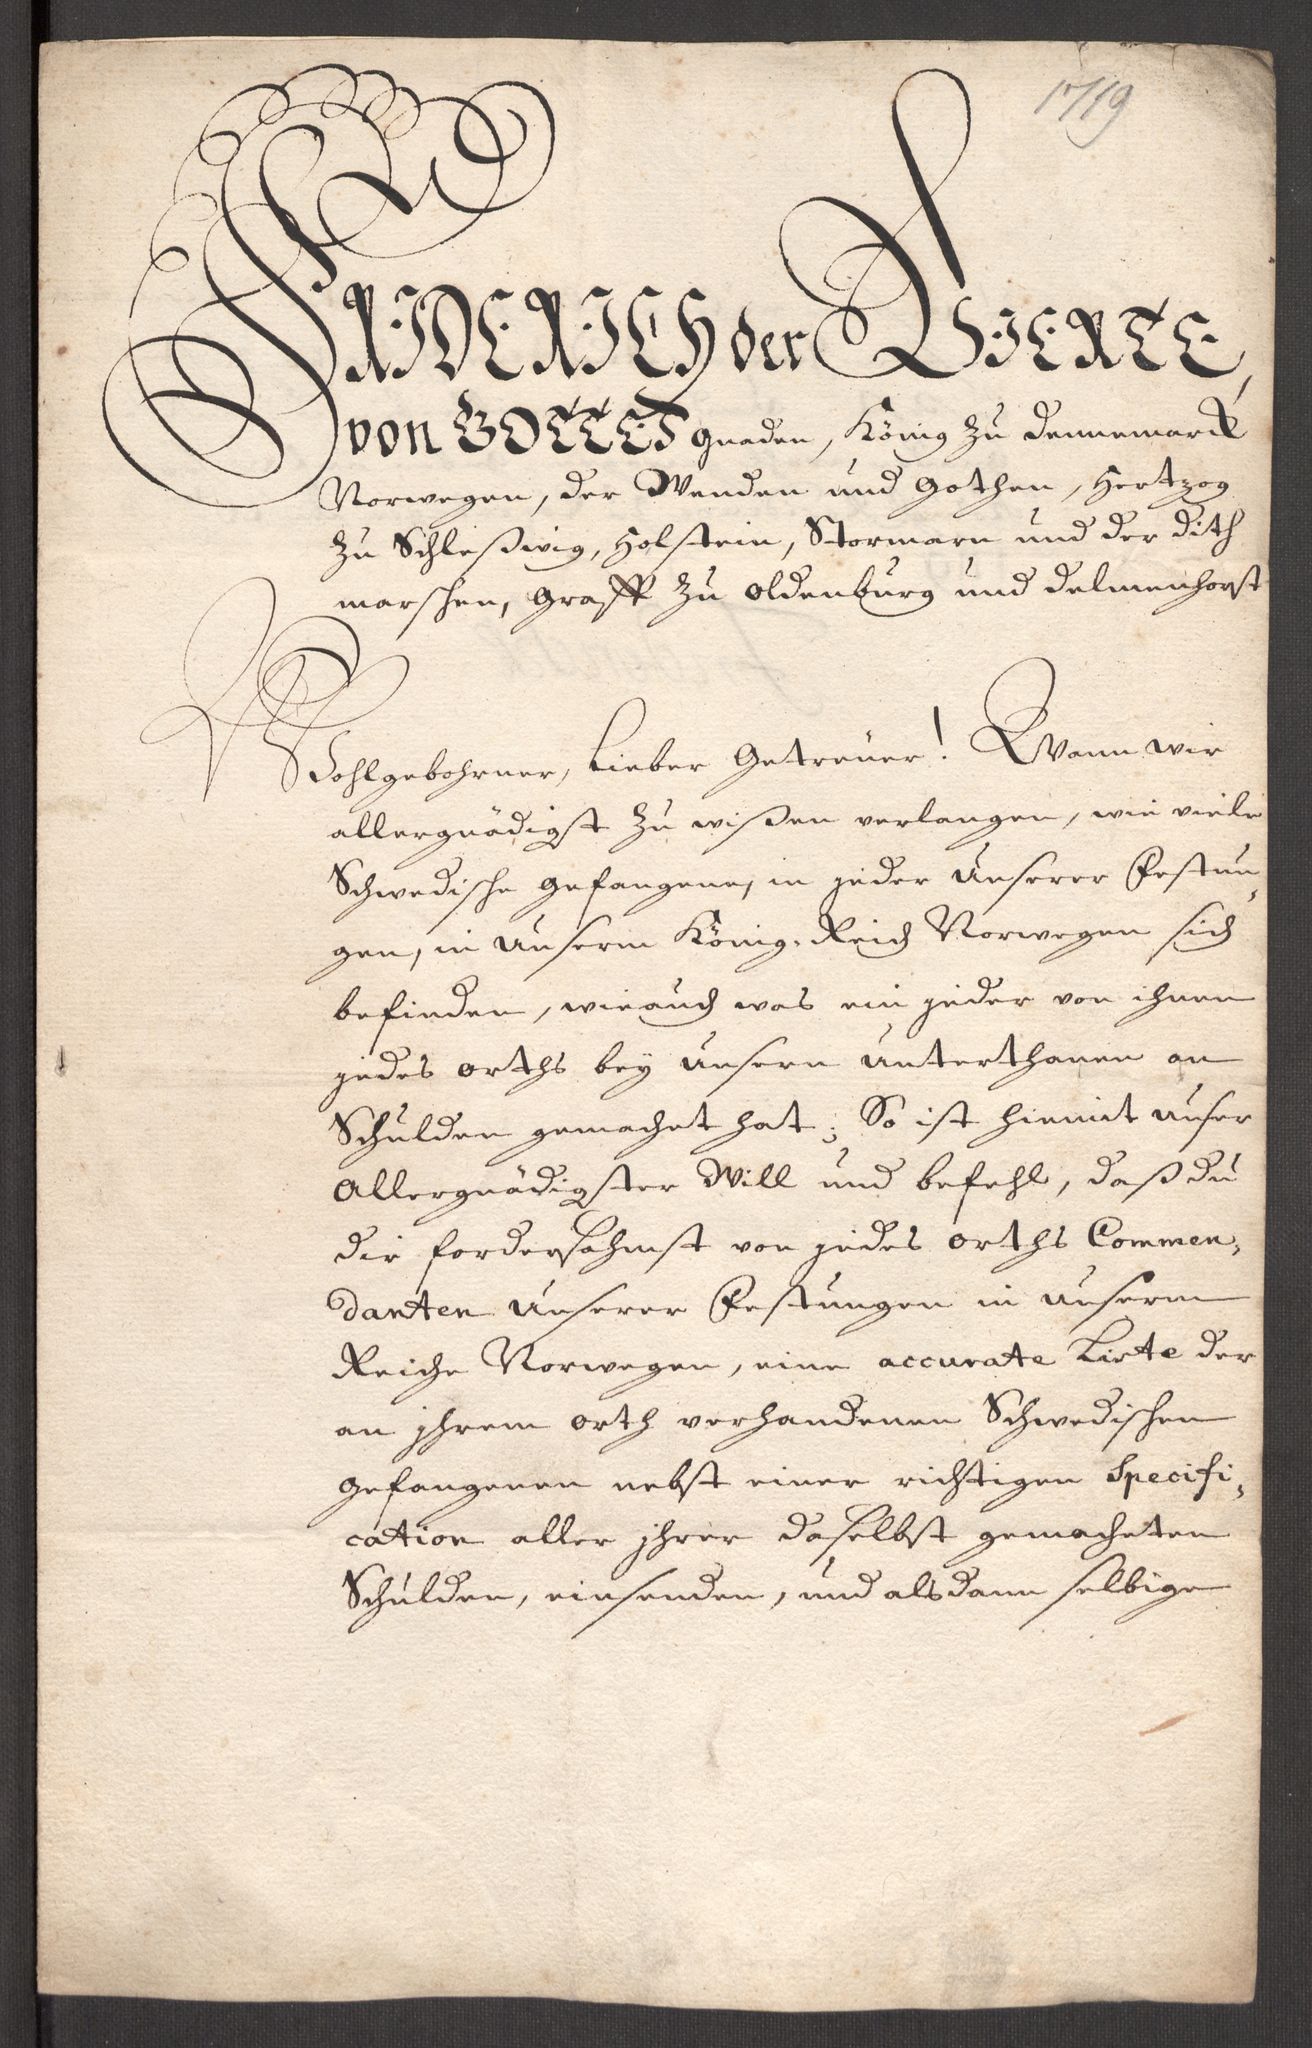 1719
FRIDERICH der VIERTE,
von GOTTES gnaden, König zu Dennemarck
Norwegen, der Wenden und Gothen, Hertzog
zu Schleßwig, Holstein, Stormarn und der Dith
marschen, Graff zu Oldenburg und Delmenhorst
Wohlgebohrner, Lieber Getreüer! Wann wir
allergnädigst zu wißen verlangen, wie viele
Schwedische gefangene, in jeder Unserer Festun„
gen, in Unserm König-Reich Norwegen sich
befinden, wie auch was ein jeder von ihnen
jedes orths bey Unsern Unterthanen an
Schulden gemachet hat; So ist hiemit Unser
Allergnädigster Will und befehl, daß du
dir fordersahmst von jedes orths Commen„
danten Unserer Festungen in Unserm
Reiche Norwegen, eine accurate Liste der
an jhrem orth verhandenen Schwedischen
gefangenen nebst einer richtigen Specifi„
cation aller jhrer daselbst gemacheten
Schulden, einsenden, und alsdann selbige